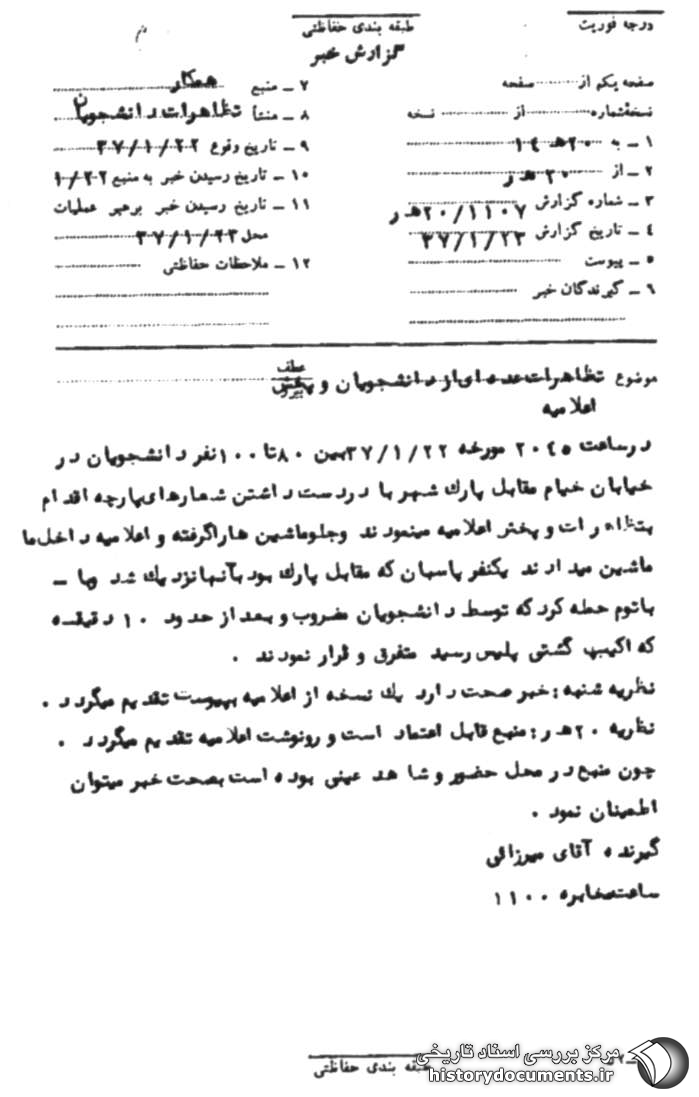 درجه فوریت
طبقه بندی حفاظتی
گزارش خبر
صفحه یکم از ........ صفحه
نسخه شماره ........ از ........ نسخه
۱ ـ به ۲۰ هـ ۱۴
۲ ـ از ۲۰ هـ ر
۳ ـ شماره گزارش ۲۰/۱۱۰۷ هـ ر
۴ ـ تاریخ گزارش ۳۷/۱/۲۳
۵ ـ پیوست
۶ ـ گیرندگان خبر
۷ ـ منبع همکار
۸ ـ منشأ تظاهرات دانشجویان
۹ ـ تاریخ وقوع ۳۷/۱/۲۲
۱۰ ـ تاریخ رسیدن خبر به منبع ۱/۲۲
۱۱ ـ تاریخ رسیدن خبر برهبر عملیات
محل ۳۷/۱/۲۳
۱۲ ـ ملاحظات حفاظتی
موضوع تظاهرات عده ای از دانشجویان و پخش
عطف
پیرو
اعلامیه
در ساعت ۲۰۴۵ مورخه ۳۷/۱/۲۲ بین ۸۰ تا ۱۰۰ نفر دانشجویان در
خیابان خیام مقابل پارک شهر با در دست داشتن شعارهای پارچه اقدام
بتظاهرات و پخش اعلامیه مینمودند وجلو ماشین هارا گرفته و اعلامیه داخل ما
ماشین میدادند یکنفر پاسبان که مقابل پارک بود بآنها نزدیک شد وبا ـ
باتوم حمله کرد که توسط دانشجویان مضروب و بعد از حدود ۱۰ دقیقه
که اکیپ گشتی پلیس رسید متفرق و فرار نمودند .
نظریه شنبه : خبر صحت دارد یک نسخه از اعلامیه بپیوست تقدیم میگردد .
نظریه ۲۰ هـ ر : منبع قابل اعتماد است و رونوشت اعلامیه تقدیم میگردد .
چون منبع در محل حضور و شاهد عینی بوده است بصحت خبر میتوان
اطمینان نمود .
گیرنده آقای میرزائی
ساعت مخابره ۱۱۰۰
طبقه بندی حفاظتی
مرکز بررسی اسناد تاریخی
historydocuments.ir